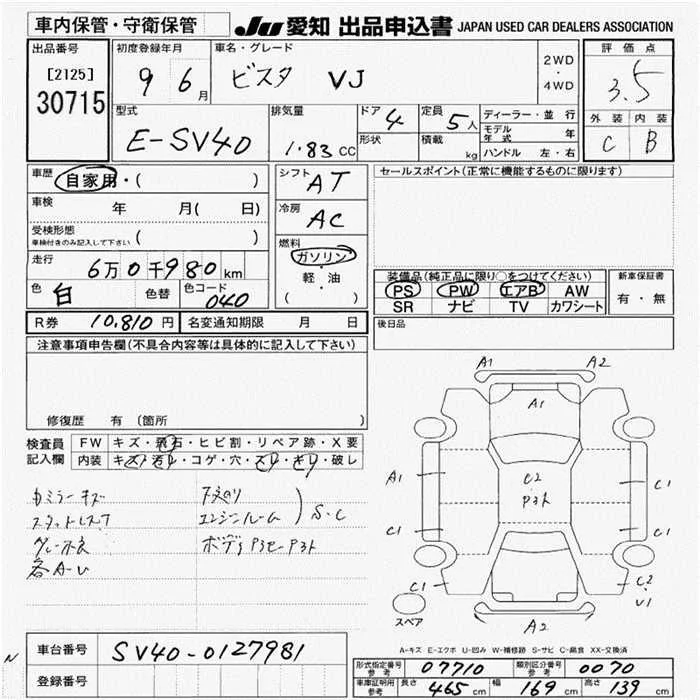 車内保管・守衛保管 JU 愛知 出品申込書 JAPAN USED CAR DEALERS ASSOCIATION
出品番号 初度登録年月 車名・グレード 評価点
[2125] 9 6月 ビスタ VJ 2WD・4WD 3.5
30715
外装 内装
C B
型式 排気量 ドア 4 定員 5人 ディーラー・並行
E-SV40 1.83 CC 形状 積載 kg モデル年式 年
ハンドル 左・右
車歴 自家用・( ) シフト AT セールスポイント(正常に機能するものに限ります)
車検 年 月( 日) 冷房 AC
受検形態 ( )
車検付きのみ記入して下さい
燃料 ガソリン・軽・油 ( )
走行 6万0千980km
装備品(純正品に限り○をつけてください) 新車保証書
色 白 色替 色コード 040
PS PW エアB AW 有・無
SR ナビ TV カワシート
R券 10,810円 名変通知期限 月 日 後日品
注意事項申告欄(不具合内容等は具体的に記入して下さい)
修復歴 有 (箇所 )
検査員記入欄 FW キズ・飛石・ヒビ割・リペア跡・X要
内装 キズ・汚レ・コゲ・穴・スレ・キレ・破レ
カミラーキズ
エンジンルーム S・C
各A-U
A1 A2
A1
A1 C2 C1
C1 C1
C1 C2
U1
A2
スペア
A-キズ E-エクボ U-凹み W-補修跡 S-サビ C-腐食 XX-交換済
車台番号 SV40-0127981
登録番号
N
形式指定番号 参考 07710 類別区分番号 参考 0070
車庫証明用 参考 長さ 465cm 幅 169cm 高さ 139cm